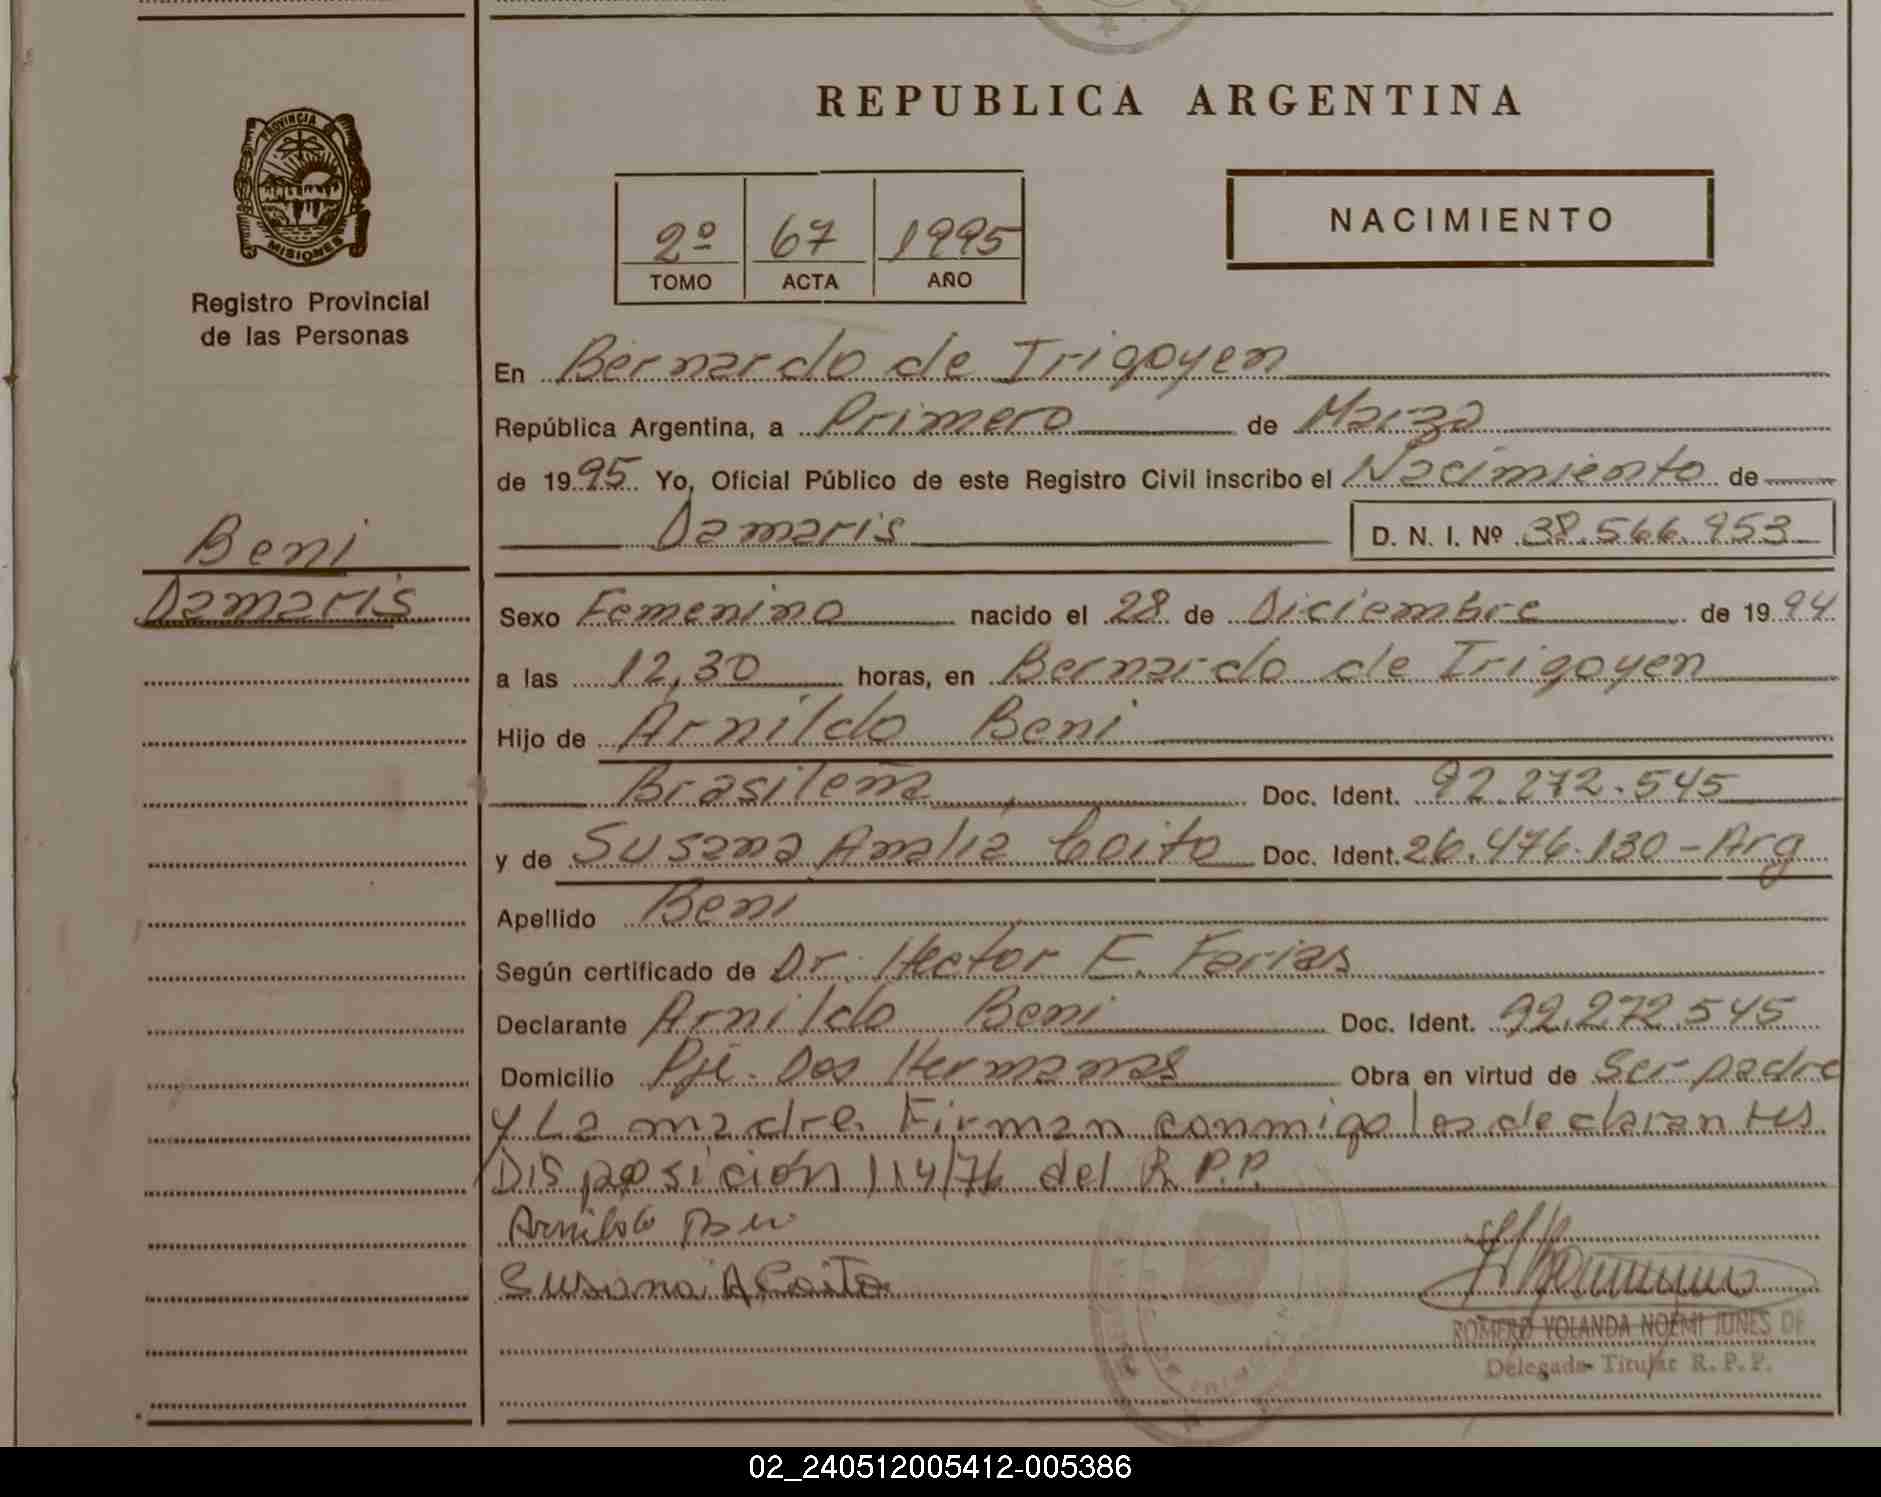 REPUBLICA ARGENTINA
PROVINCIA DE
MISIONES
Registro Provincial
de las Personas
2º 67 1995
TOMO ACTA AÑO
NACIMIENTO
Beni
Damaris
En Bernardo de Irigoyen
República Argentina, a Primero de Marzo
de 1995 Yo, Oficial Público de este Registro Civil inscribo el Nacimiento de
Damaris D. N. I. Nº 38.566.953
Sexo Femenino nacido el 28 de Diciembre de 1994
a las 12,30 horas, en Bernardo de Irigoyen
Hijo de Arnildo Beni
Brasileña Doc. Ident. 92.272.545
y de Susana Amalia Coito Doc. Ident. 26.476.130 - Arg
Apellido Beni
Según certificado de Dr. Hector E. Farias
Declarante Arnildo Beni Doc. Ident. 92.272.545
Domicilio Pje. Dos Hermanas Obra en virtud de Ser padre
y La madre. Firman conmigo los declarantes
Disposición 114/76 del R.P.P.
Arnildo Beni
Susana A Coito
ROMERO YOLANDA NOEMI JUNES DE
Delegada Titular R. P. P.
02_240512005412-005386